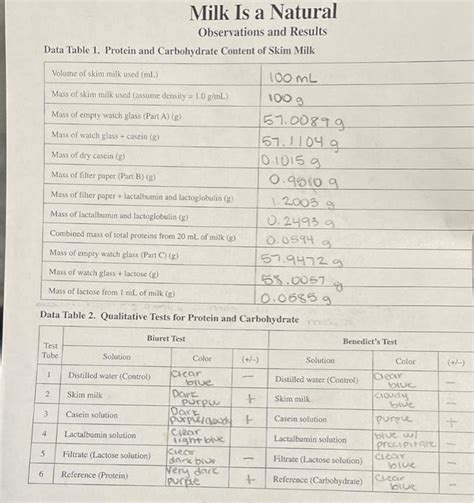 Milk Is a Natural
Observations and Results
Data Table 1. Protein and Carbohydrate Content of Skim Milk
Volume of skim milk used (mL) 100 mL
Mass of skim milk used (assume density = 1.0 g/mL) 100 g
Mass of empty watch glass (Part A) (g) 57.0089 g
Mass of watch glass + casein (g) 57.1104 g
Mass of dry casein (g) 0.1015 g
Mass of filter paper (Part B) (g) 0.9510 g
Mass of filter paper + lactalbumin and lactoglobulin (g) 1.2003 g
Mass of lactalbumin and lactoglobulin (g) 0.2493 g
Combined mass of total proteins from 20 mL of milk (g) 0.0594 g
Mass of empty watch glass (Part C) (g) 57.9472 g
Mass of watch glass + lactose (g) 58.0057 g
Mass of lactose from 1 mL of milk (g) 0.0585 g
Data Table 2. Qualitative Tests for Protein and Carbohydrate
Test Tube Biuret Test Benedict's Test
Solution Color (+/−) Solution Color (+/−)
1 Distilled water (Control) Clear blue − Distilled water (Control) Clear blue −
2 Skim milk Dark purple + Skim milk cloudy blue −
3 Casein solution Dark purple/cloudy + Casein solution purple +
4 Lactalbumin solution Clear light blue − Lactalbumin solution blue w/ precipitate −
5 Filtrate (Lactose solution) Clear dark blue − Filtrate (Lactose solution) Clear blue −
6 Reference (Protein) Very dark purple + Reference (Carbohydrate) Clear blue −